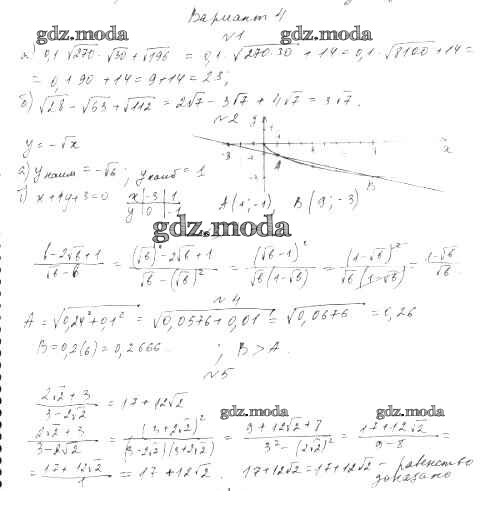 Вариант 4
gdz.moda
№1 gdz.moda
а) 0,1·√270·√30+√196 = 0,1·√270·30 + 14 = 0,1·√8100+14 =
= 0,1·90+14 = 9+14 = 23;
б) √28 - √63 + √112 = 2√7 - 3√7 + 4√7 = 3√7.
№2
y = -√x
а) y наим = -√6; y наиб = 1
x+4y+3=0 x -3 1
y 0 -1
A(1;-1), B(9;-3)
gdz.moda
b-2√b+1 / √b-b = (√b)²-2√b+1 / √b-(√b)² = (√b-1)² / √b(1-√b) = (1-√b)² / √b(1-√b) = 1-√b / √b.
№4
A = √0,24²+0,1² = √0,0576+0,01 = √0,0676 = 0,26
B = 0,2(6) = 0,2666... ; B > A.
№5
2√2+3 / 3-2√2 = 17+12√2
gdz.moda gdz.moda
2√2+3 / 3-2√2 = (3+2√2)² / (3-2√2)(3+2√2) = 9+12√2+8 / 3²-(2√2)² = 17+12√2 / 9-8 =
= 17+12√2 / 1 = 17+12√2. 17+12√2 = 17+12√2 - равенство
gdz.moda gdz.moda доказано